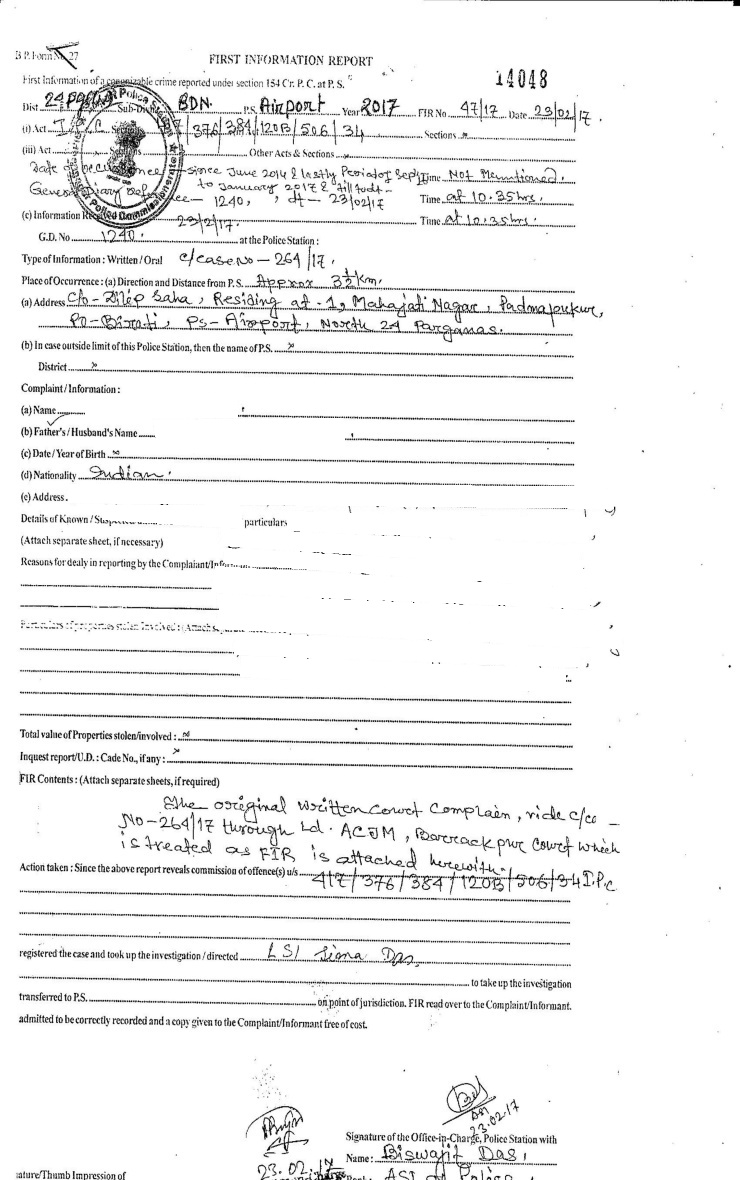 B P. Form No. 27
FIRST INFORMATION REPORT
14048
First Information of a cognizable crime reported under section 154 Cr. P. C. at P. S.
Dist 24 Sub-Div. BDN. P.S. Airport Year 2017 FIR No 47/17 Date 23/02/17.
(i) Act I.P.C Sections /376/384/120B/506/34 Sections
(iii) Act Sections Other Acts & Sections
Date of occurrence - since June 2014 & lastly Period of Sept Time Not Menntioned.
to January 2017 & till tudt-
General Diary Ref - 1240, dt - 23/02/17 Time at 10.35 hrs.
(c) Information 23/2/17. Time at 10.35 hrs.
G.D. No 1240. at the Police Station :
Type of Information : Written / Oral c/case No - 264/17.
Place of Occurrence : (a) Direction and Distance from P.S. Approx 3½ km.
(a) Address C/o - Dilep Saha, Residing at - 1, Mahajati Nagar, Padmapukur,
Po - Birati, PS - Airport, North 24 Parganas.
(b) In case outside limit of this Police Station, then the name of P.S.
District
Complaint / Information :
(a) Name
(b) Father's / Husband's Name
(c) Date / Year of Birth
(d) Nationality Indian.
(e) Address.
Details of Known / particulars
(Attach separate sheet, if necessary)
Reasons for dealy in reporting by the Complaiant/
Particulars of properties stolen involved : (Attach
Total value of Properties stolen/involved :
Inquest report/U.D. : Cade No., if any :
FIR Contents : (Attach separate sheets, if required)
The original written Court Complain, vide c/cc -
No - 264/17 through Ld. ACJM, Barrackpur Court which
is treated as FIR is attached herewith.
Action taken : Since the above report reveals commission of offence(s) u/s 417/376/384/120B/506/34 I.P.C
registered the case and took up the investigation / directed LSI Sima Das,
to take up the investigation
transferred to P.S. on point of jurisdiction. FIR read over to the Complaint/Informant.
admitted to be correctly recorded and a copy given to the Complaint/Informant free of cost.
23.02.17
Signature of the Office-in-Charge, Police Station with
Name : Biswajit Das,
23.02.17
ature/Thumb Impression of
ASI of Police